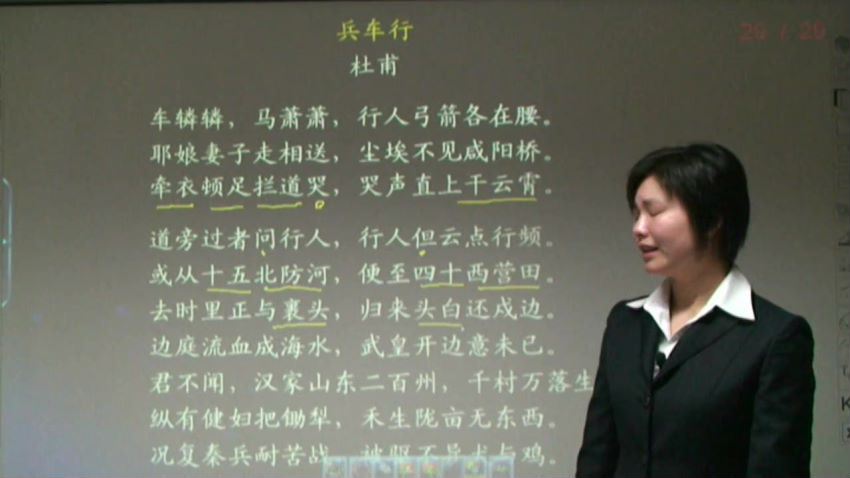 20 / 20
兵车行
杜甫
车辚辚，马萧萧，行人弓箭各在腰。
耶娘妻子走相送，尘埃不见咸阳桥。
牵衣顿足拦道哭，哭声直上干云霄。
道旁过者问行人，行人但云点行频。
或从十五北防河，便至四十西营田。
去时里正与裹头，归来头白还戍边。
边庭流血成海水，武皇开边意未已。
君不闻，汉家山东二百州，千村万落生
纵有健妇把锄犁，禾生陇亩无东西。
况复秦兵耐苦战，被驱不异犬与鸡。